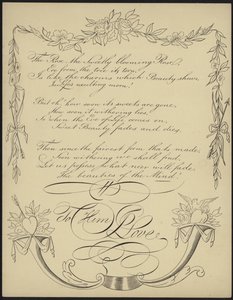 The Rose, the sweetly blooming Rose,
Ere from the tree its torn,
Is like the charms which Beauty shows
In life's exulting morn.
But oh, how soon its sweets are gone,
How soon it withering lies,
So when the Eve of life comes on,
Sweet Beauty fades and dies.
Then since the fairest form that's made
Soon withering we shall find,
Let us possess what ne'er will fade,
The beauties of the Mind!
To Him
Love